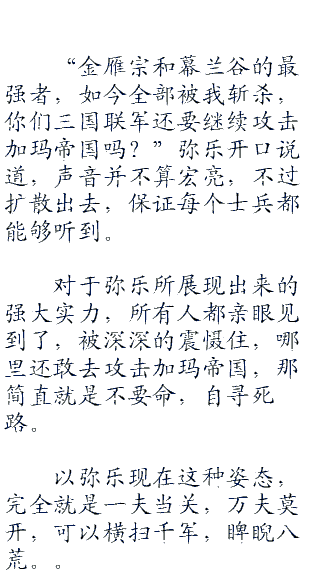 “金雁宗和幕兰谷的最
强者，如今全部被我斩杀，
你们三国联军还要继续攻击
加玛帝国吗？”弥乐开口说
道，声音并不算宏亮，不过
扩散出去，保证每个士兵都
能够听到。
对于弥乐所展现出来的
强大实力，所有人都亲眼见
到了，被深深的震慑住，哪
里还敢去攻击加玛帝国，那
简直就是不要命，自寻死
路。
以弥乐现在这种姿态，
完全就是一夫当关，万夫莫
开，可以横扫千军，睥睨八
荒。。